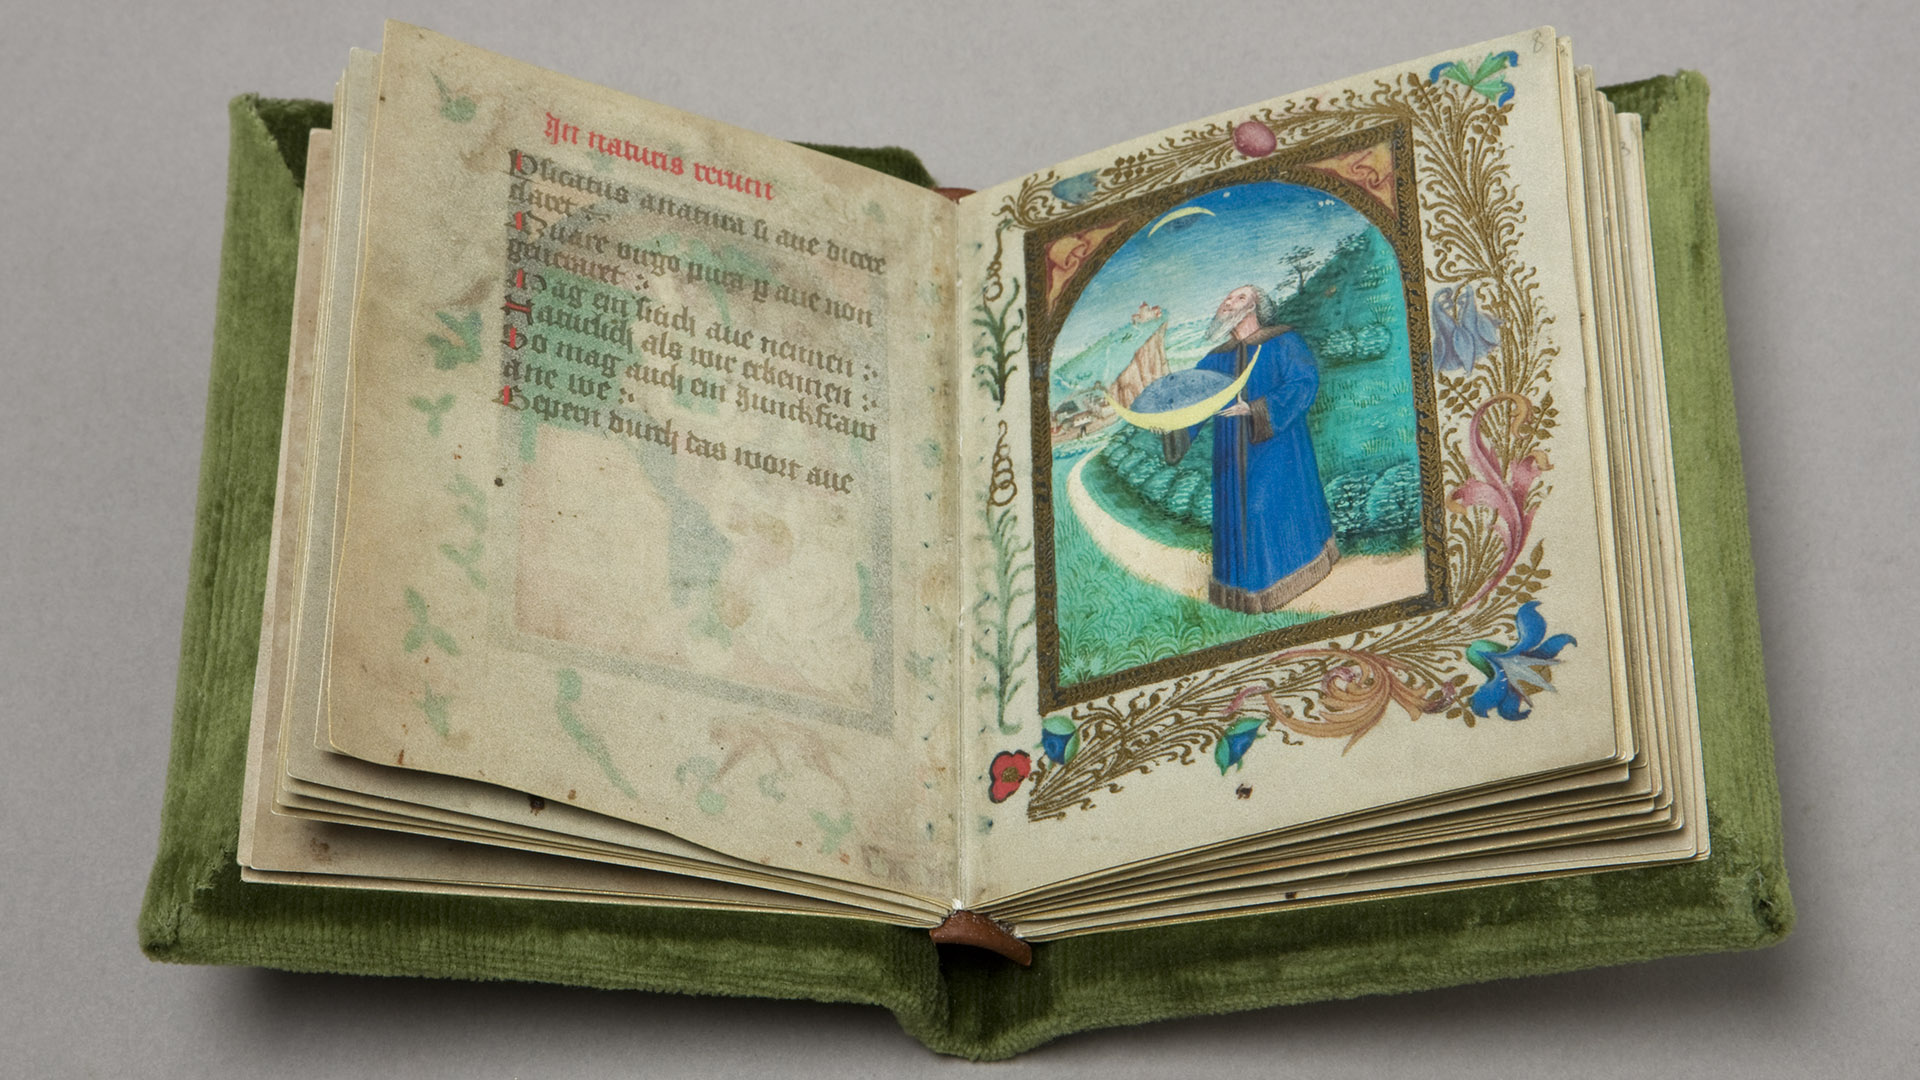 In naturis rerum
Psicatus anatura si aue dicere
claret :~
Quare virgo pura p aue non
generaret :
Mag ein sitich aue nennen :~
Naturlich als wir erkennen :~
So mag auch ein Junckfraw
ane we :~
Gepern durch das wort aue
8